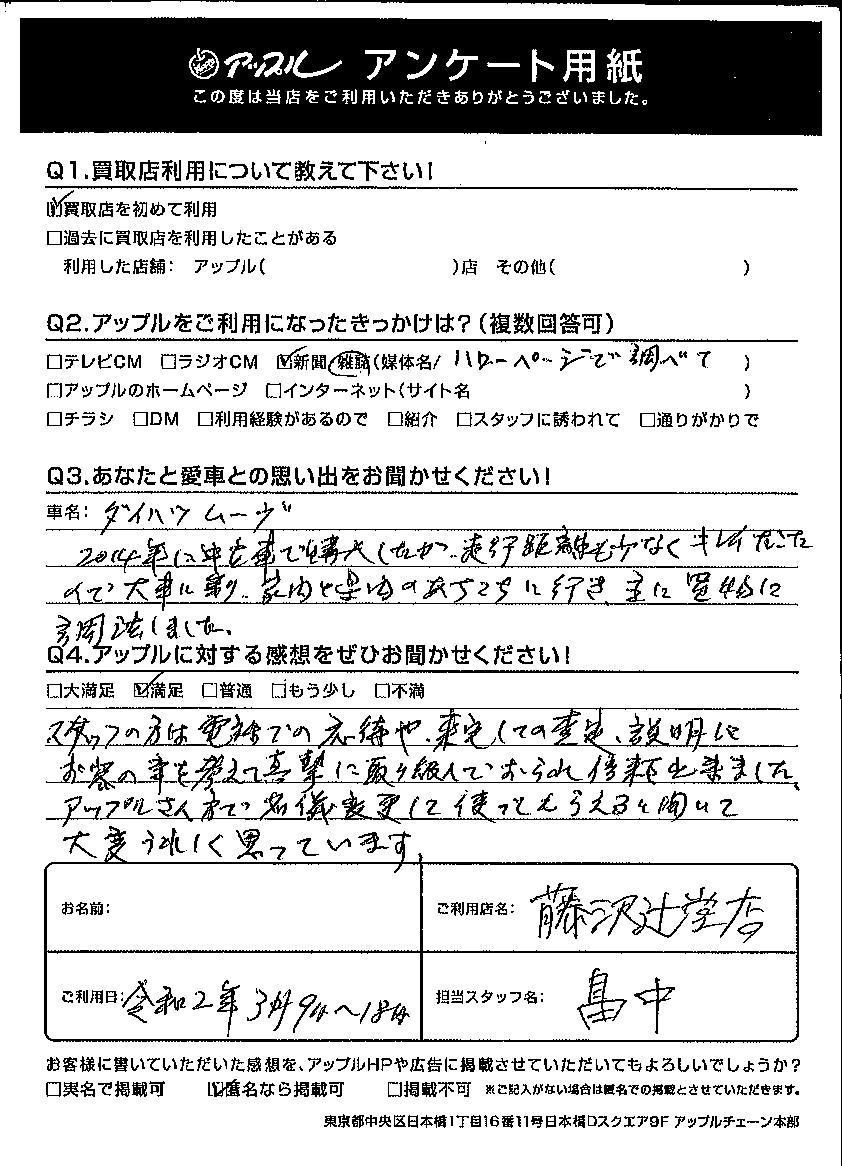 アップル アンケート用紙
この度は当店をご利用いただきありがとうございました。
Q1.買取店利用について教えて下さい!
☑買取店を初めて利用
□過去に買取店を利用したことがある
利用した店舗: アップル( )店 その他( )
Q2.アップルをご利用になったきっかけは?(複数回答可)
□テレビCM □ラジオCM ☑新聞 雑誌(媒体名/ ハローページで調べて )
□アップルのホームページ □インターネット(サイト名 )
□チラシ □DM □利用経験があるので □紹介 □スタッフに誘われて □通りがかりで
Q3.あなたと愛車との思い出をお聞かせください!
車名: ダイハツ ムーヴ
2014年に中古車で購入したが、走行距離も少なくキレイだった
ので大事に乗り、家内と県内のあちこちに行き、主に買物に
重宝しました。
Q4.アップルに対する感想をぜひお聞かせください!
□大満足 ☑満足 □普通 □もう少し □不満
スタッフの方は電話での応待や、来宅しての査定、説明に
お客の事を考えて真摯に取り組んでおられ信頼出来ました。
アップルさん方で名儀変更して使ってもらえると聞いて
大変うれしく思っています。
お名前:
ご利用店名: 藤沢辻堂店
ご利用日: 令和2年3月9日〜18日
担当スタッフ名: 畠中
お客様に書いていただいた感想を、アップルHPや広告に掲載させていただいてもよろしいでしょうか?
□実名で掲載可 ☑匿名なら掲載可 □掲載不可 ※ご記入がない場合は匿名での掲載とさせていただきます。
東京都中央区日本橋1丁目16番11号日本橋Dスクエア9F アップルチェーン本部